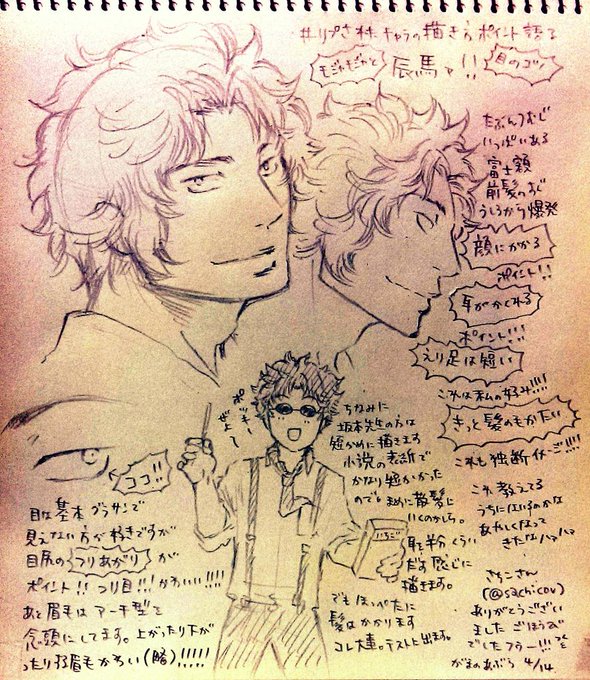 #リプきた キャラの描き方ポイント語る
モジャモジャと
辰馬ァ!!
目のコツ
たぶんつむじ
いっぱいある
富士額
前髪のつむじ
うしろから爆発
顔にかかる
ポイント!!
耳がかくれる
ポイント!!!
えり足は短い
これは私の好み!!!!
きっと髪のもかたい
これも独断イメージ!!!!
これ教えてる
うちにはいるのかな
あやしくなって
きたなハァハァ
さちこさん
(@sachicov)
ありがとうござい
ました ごほうび
でしたフゥー!!!
がまのあぶら 4/14
ポッキー
ぜよ〜
いちご
ちなみに
坂本先生の方は
短かめに描きます
小説の表紙で
かなり短かかった
のでと まめに散髪に
いくのかしら。
耳を半分くらい
だす感じに
描きます。
でもほっぺたに
髪はかかります
コレ大事。テストに出ます。
ココ!!
目は基本グラサンで
見えない方が好きですが
目尻のつりあがりが
ポイント!!つり目!!!かわいい!!!!
あと眉毛はアーチ型を
念頭にしてます。上がったり下が
ったり 眉毛かわいい(略)!!!!!